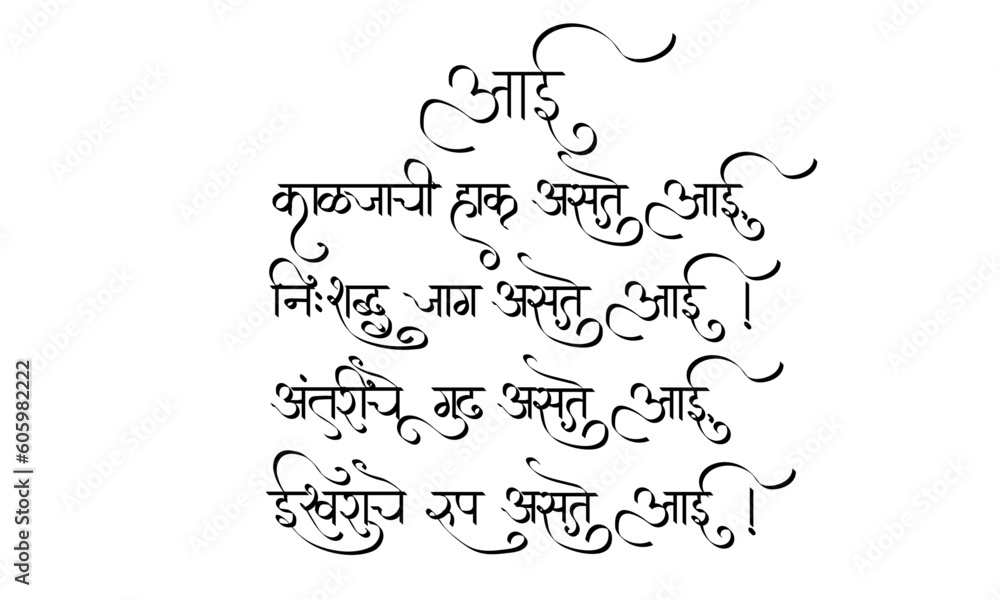 आई
काळजाची हाक असते आई,
निःशब्द जाग असते आई !
अंतरीचे गुढ असते आई,
ईश्वराचे रुप असते आई !
Adobe Stock | #605982222